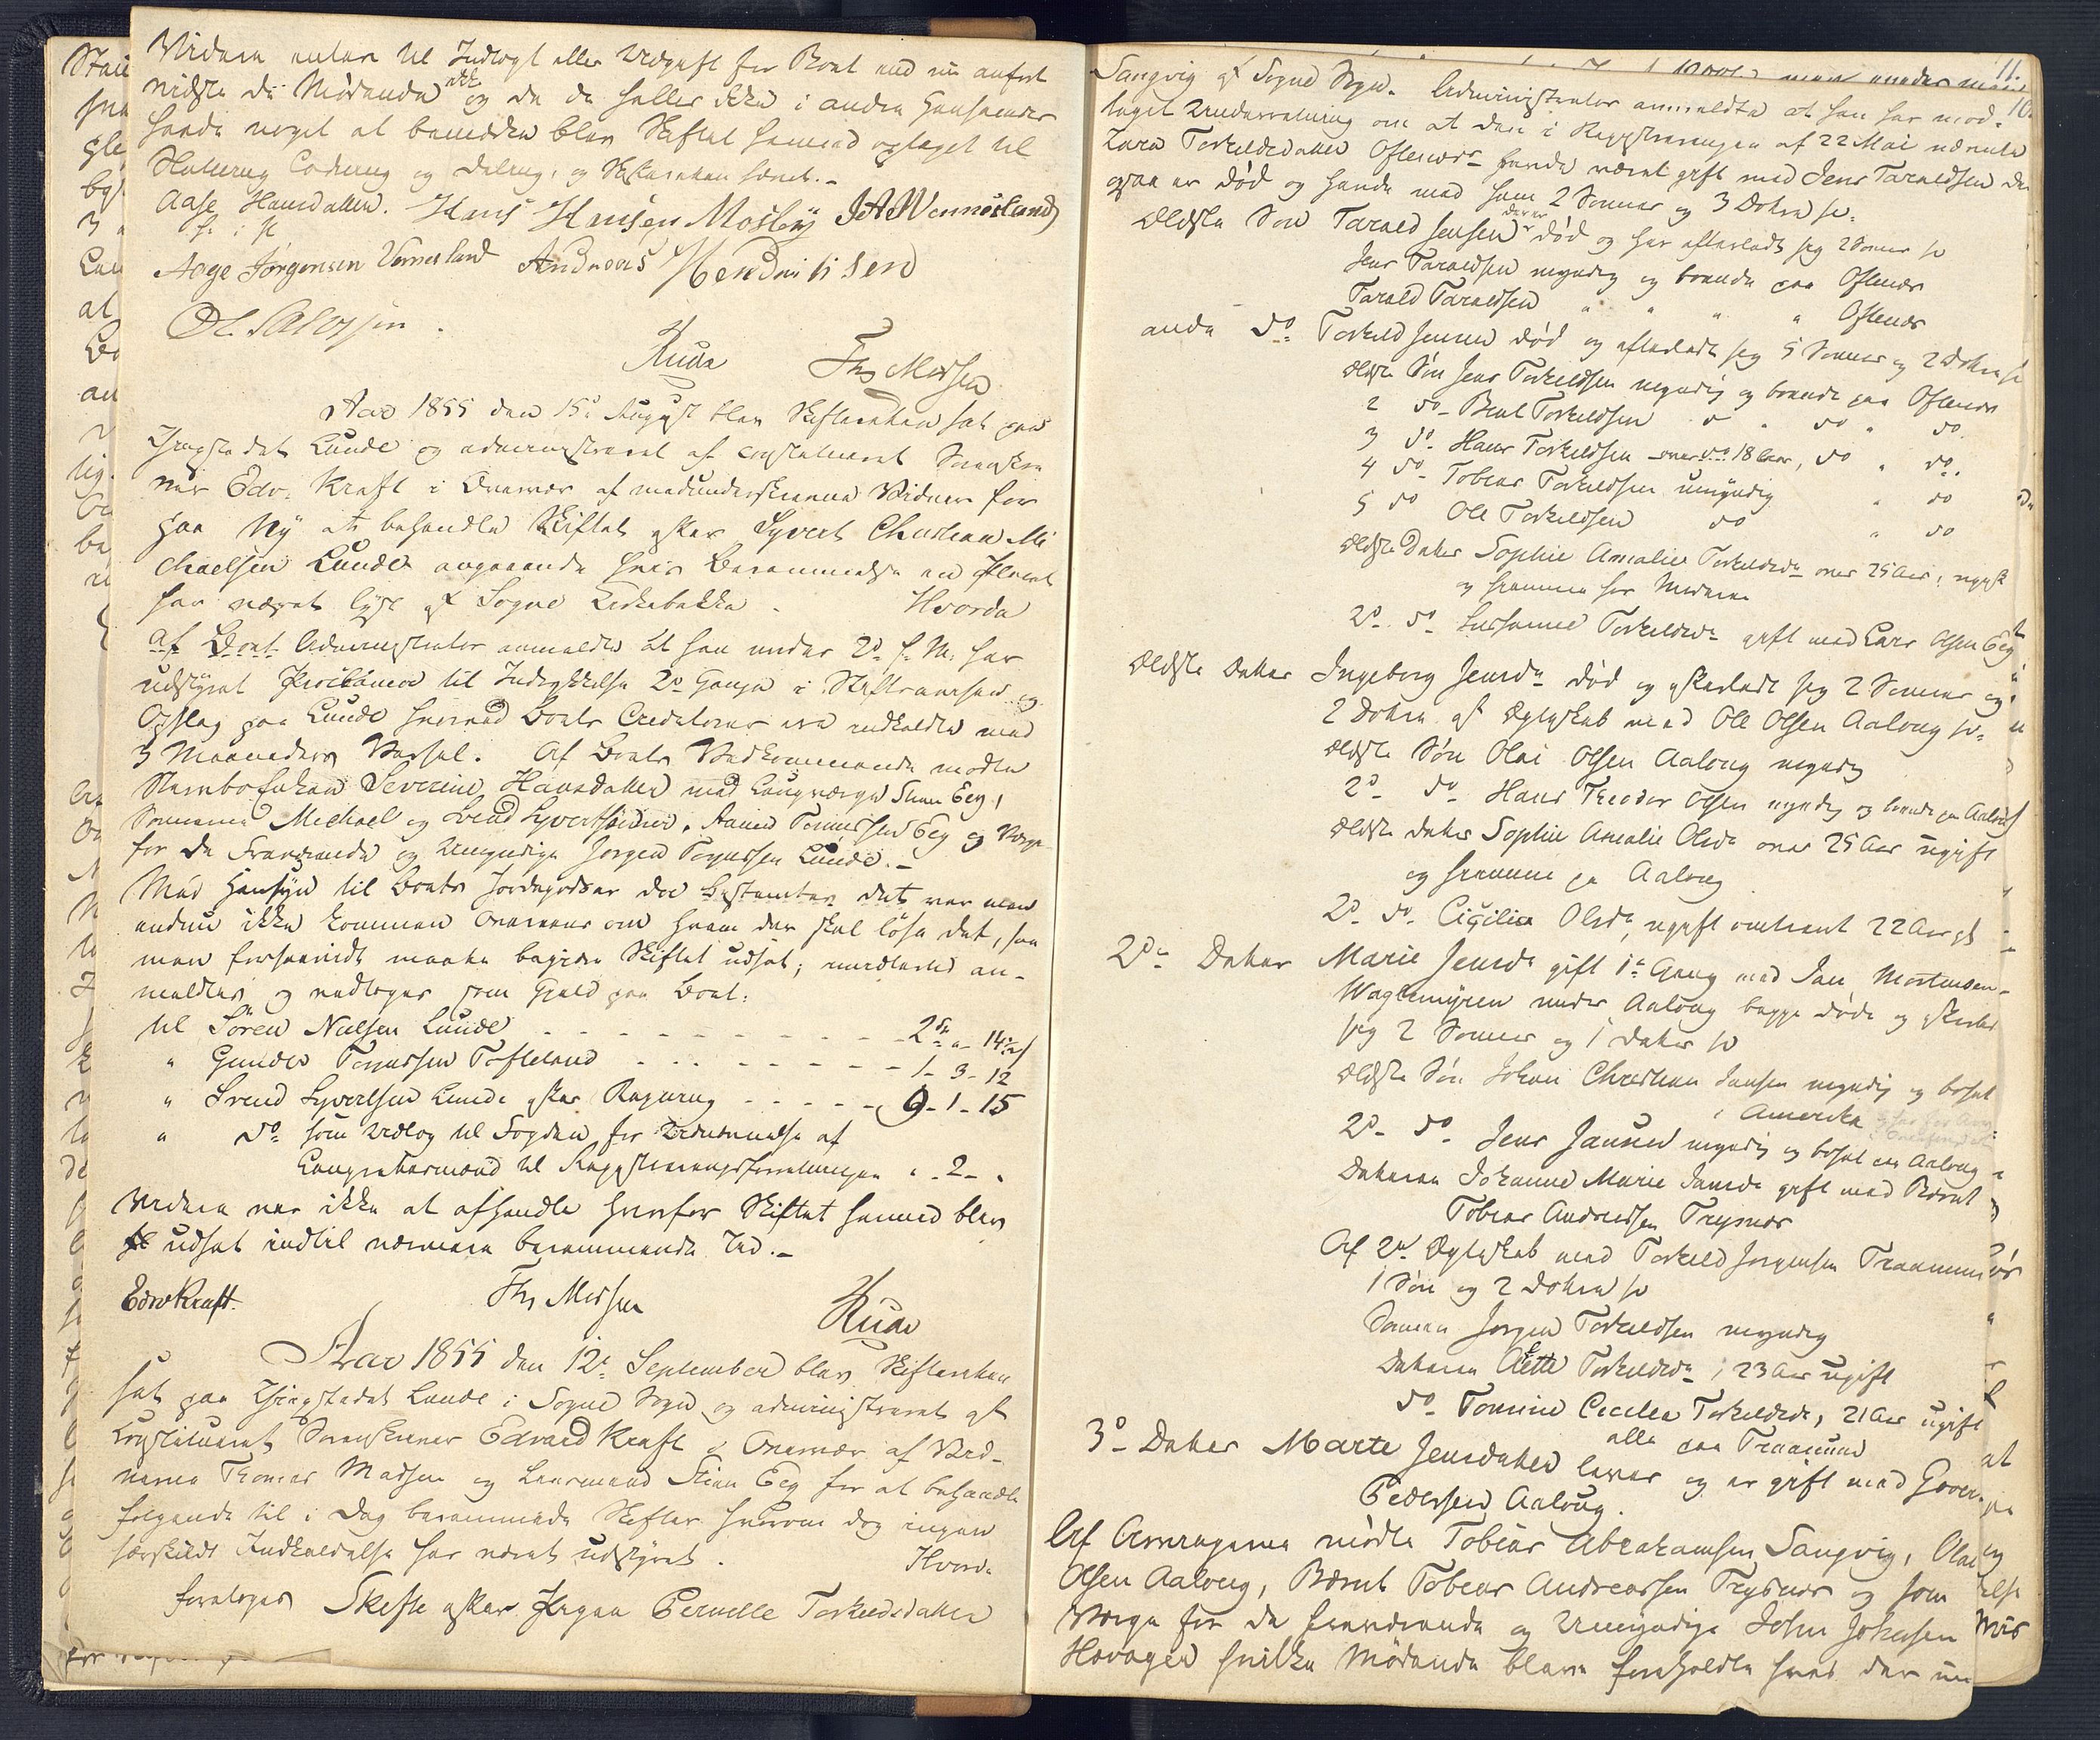 Videre enten til Indtægt eller Udgift for Boet end nu anført
vidste de Mødende ikke og da de heller ikke i anden Henseende
havde noget at bemærke blev Skiftet hermed optaget til
Slutning Cadering og Deling, og Skifteretten hævet.-
Aase Hansdatter. Hans Hansen Mosbøy J A Wennesland
m. f. P.
Aage Jørgensen Vennesland Andreas Hendrichsen
Ol. Salvesen.
Ruda Ths Madsen
Aar 1855 den 15de August blev Skifteretten sat paa
Thingstedet Lunde og administreret af constitueret Sorenskri
ver Edv. Kraft i Overvær af medunderskrevne Vidner for
paa Ny at behandle Skiftet efter Syvert Christian Mi
chaelsen Lunde angaaende hvis Berammelse en Placat
har været lyst af Sogne Kirkebakke. Hvorda
af Boet. Administrator anmeldte at han under 2d f. M. har
udstyret Proclama til Indrykkelse 2de Gange i Stiftsavisen og
Opslag paa Lunde hvorved Boets Creditorer ere indkaldte med
3 Maaneders Varsel. Af Boets Vedkommende mødte
Stervboenken Severine Hansdatter med Laugværge Stian Eeg,
Sønnerne Michael og Svend Syvertsønner, Aanen Tønnessen Eeg og Værge
for de Fraværende og Umyndige Jørgen Tønnessen Lunde.-
Med Hensyn til Boets Jordegods da Bestemtes det var man
endnu ikke kommen overeens om hvem der skal løse det, saa
man forsaavidt maatte begjære Skiftet udsat; imidlertid an-
meldtes og vedtoges som Gjeld paa Boet:
til Søren Nielsen Lunde - - - - - - - - 2 Sp " - 14½ s
" Gunder Tønnessen Tofteland - - - - - - - 1 - 3 - 12
" Svend Syvertsen Lunde efter Regning - - - - - 9 - 1 - 15
" do. som Udlæg til Fogden for Udnævnelse af
Laugrettesmænd til Registreringsforretningen " - 2 - "
Videre var ikke at afhandle hvorfor Skiftet hermed blev
udsat indtil nærmere berammende Tid.-
Edv Kraft. Ths Madsen Ruda
Aar 1855 den 12te September blev Skifteretten
sat paa Thingstedet Lunde i Sogne Sogn og administreret af
constitueret Sorenskriver Edvard Kraft i Overvær af Vid-
nerne Thomas Madsen og Lensmand Stian Eeg for at behandle
følgende til i Dag berammede Skifter hvorom dog ingen
særskilt Indkaldelse har været udstyret. Hvorda
foretoges Skifte efter Pigen Pernille Torkildsdatter
11.
10.
Sangvig af Sogne Sogn. Administrator anmeldte at han har mod-
taget Underretning om at den i Registreringen af 22 Mai nævnte
Sara Torkildsdatter Oftenæs havde været gift med Jens Taraldsen der
ogsaa er død og havde med ham 2 Sønner og 3 Døttre so:
Ældste Søn Tarald Jensen der er død og har efterladt sig 2 Sønner so
Jens Taraldsen myndig og boende paa Oftenæs
Tarald Taraldsen " " " " Oftenæs
anden do. Torkild Jensen død og efterladt sig 5 Sønner og 2 Døttre so
Ældste Søn Jens Torkildsen myndig og boende paa Oftenæs
2 do. Bent Torkildsen " " do " do.
3 do. Hans Torkildsen over 18 Aar, do " do.
4 do. Tobias Torkildsen umyndig " do
5 do Ole Torkildsen do " do
Ældste Datter Sophie Amalie Torkildsdr. over 25 Aar, ugift
og hjemme hos Moderen
2d. do. Susanne Torkildsdr gift med Lars Olsen Eeg
Ældste Datter Ingeborg Jensdr død og efterladt sig 2 Sønner og
2 Døttre af Ægteskab med Ole Olsen Aaloug so:
Ældste Søn Olai Olsen Aaloug myndig
2d. do. Hans Theodor Olsen myndig og boende paa Aaloug
Ældste Datter Sophie Amalie Olsdr over 25 Aar ugift
og hjemme paa Aaloug
2d. do. Cicilie Olsdr, ugift omtrent 22 Aar gl
2den Datter Marie Jensdr gift 1te Gang med Jan Mortensen
Wagtemyren under Aaloug begge døde og efterladt
sig 2 Sønner og 1 Datter so
Ældste Søn Johan Christian Jansen myndig og bosat
i Amerika
2d. do. Jens Jansen myndig og bosat paa Aaloug
Datteren Johanne Marie Jansdr gift med Bernt
Tobias Andreassen Trysnæs
Af 2det Ægteskab med Torkild Jørgensen Traanum
1 Søn og 2 Døttre so
Sønnen Jørgen Torkildsen myndig
Datteren Alette Torkildsdr, 23 Aar ugift
do. Tomine Cecilia Torkildsdr, 21 Aar ugift
alle paa Traanum
3die Datter Marte Jensdatter lever og er gift med Gover
Pedersen Aaloug.
Af Arvingerne mødte Tobias Abrahamsen Sangvig, Olai
Olsen Aaloug, Bernt Tobias Andreassen Trysnæs og som
Værge for de fraværende og Umyndige John Johnsen
Høvaagen hvilke Mødende bleve foreholdte hvad der nu